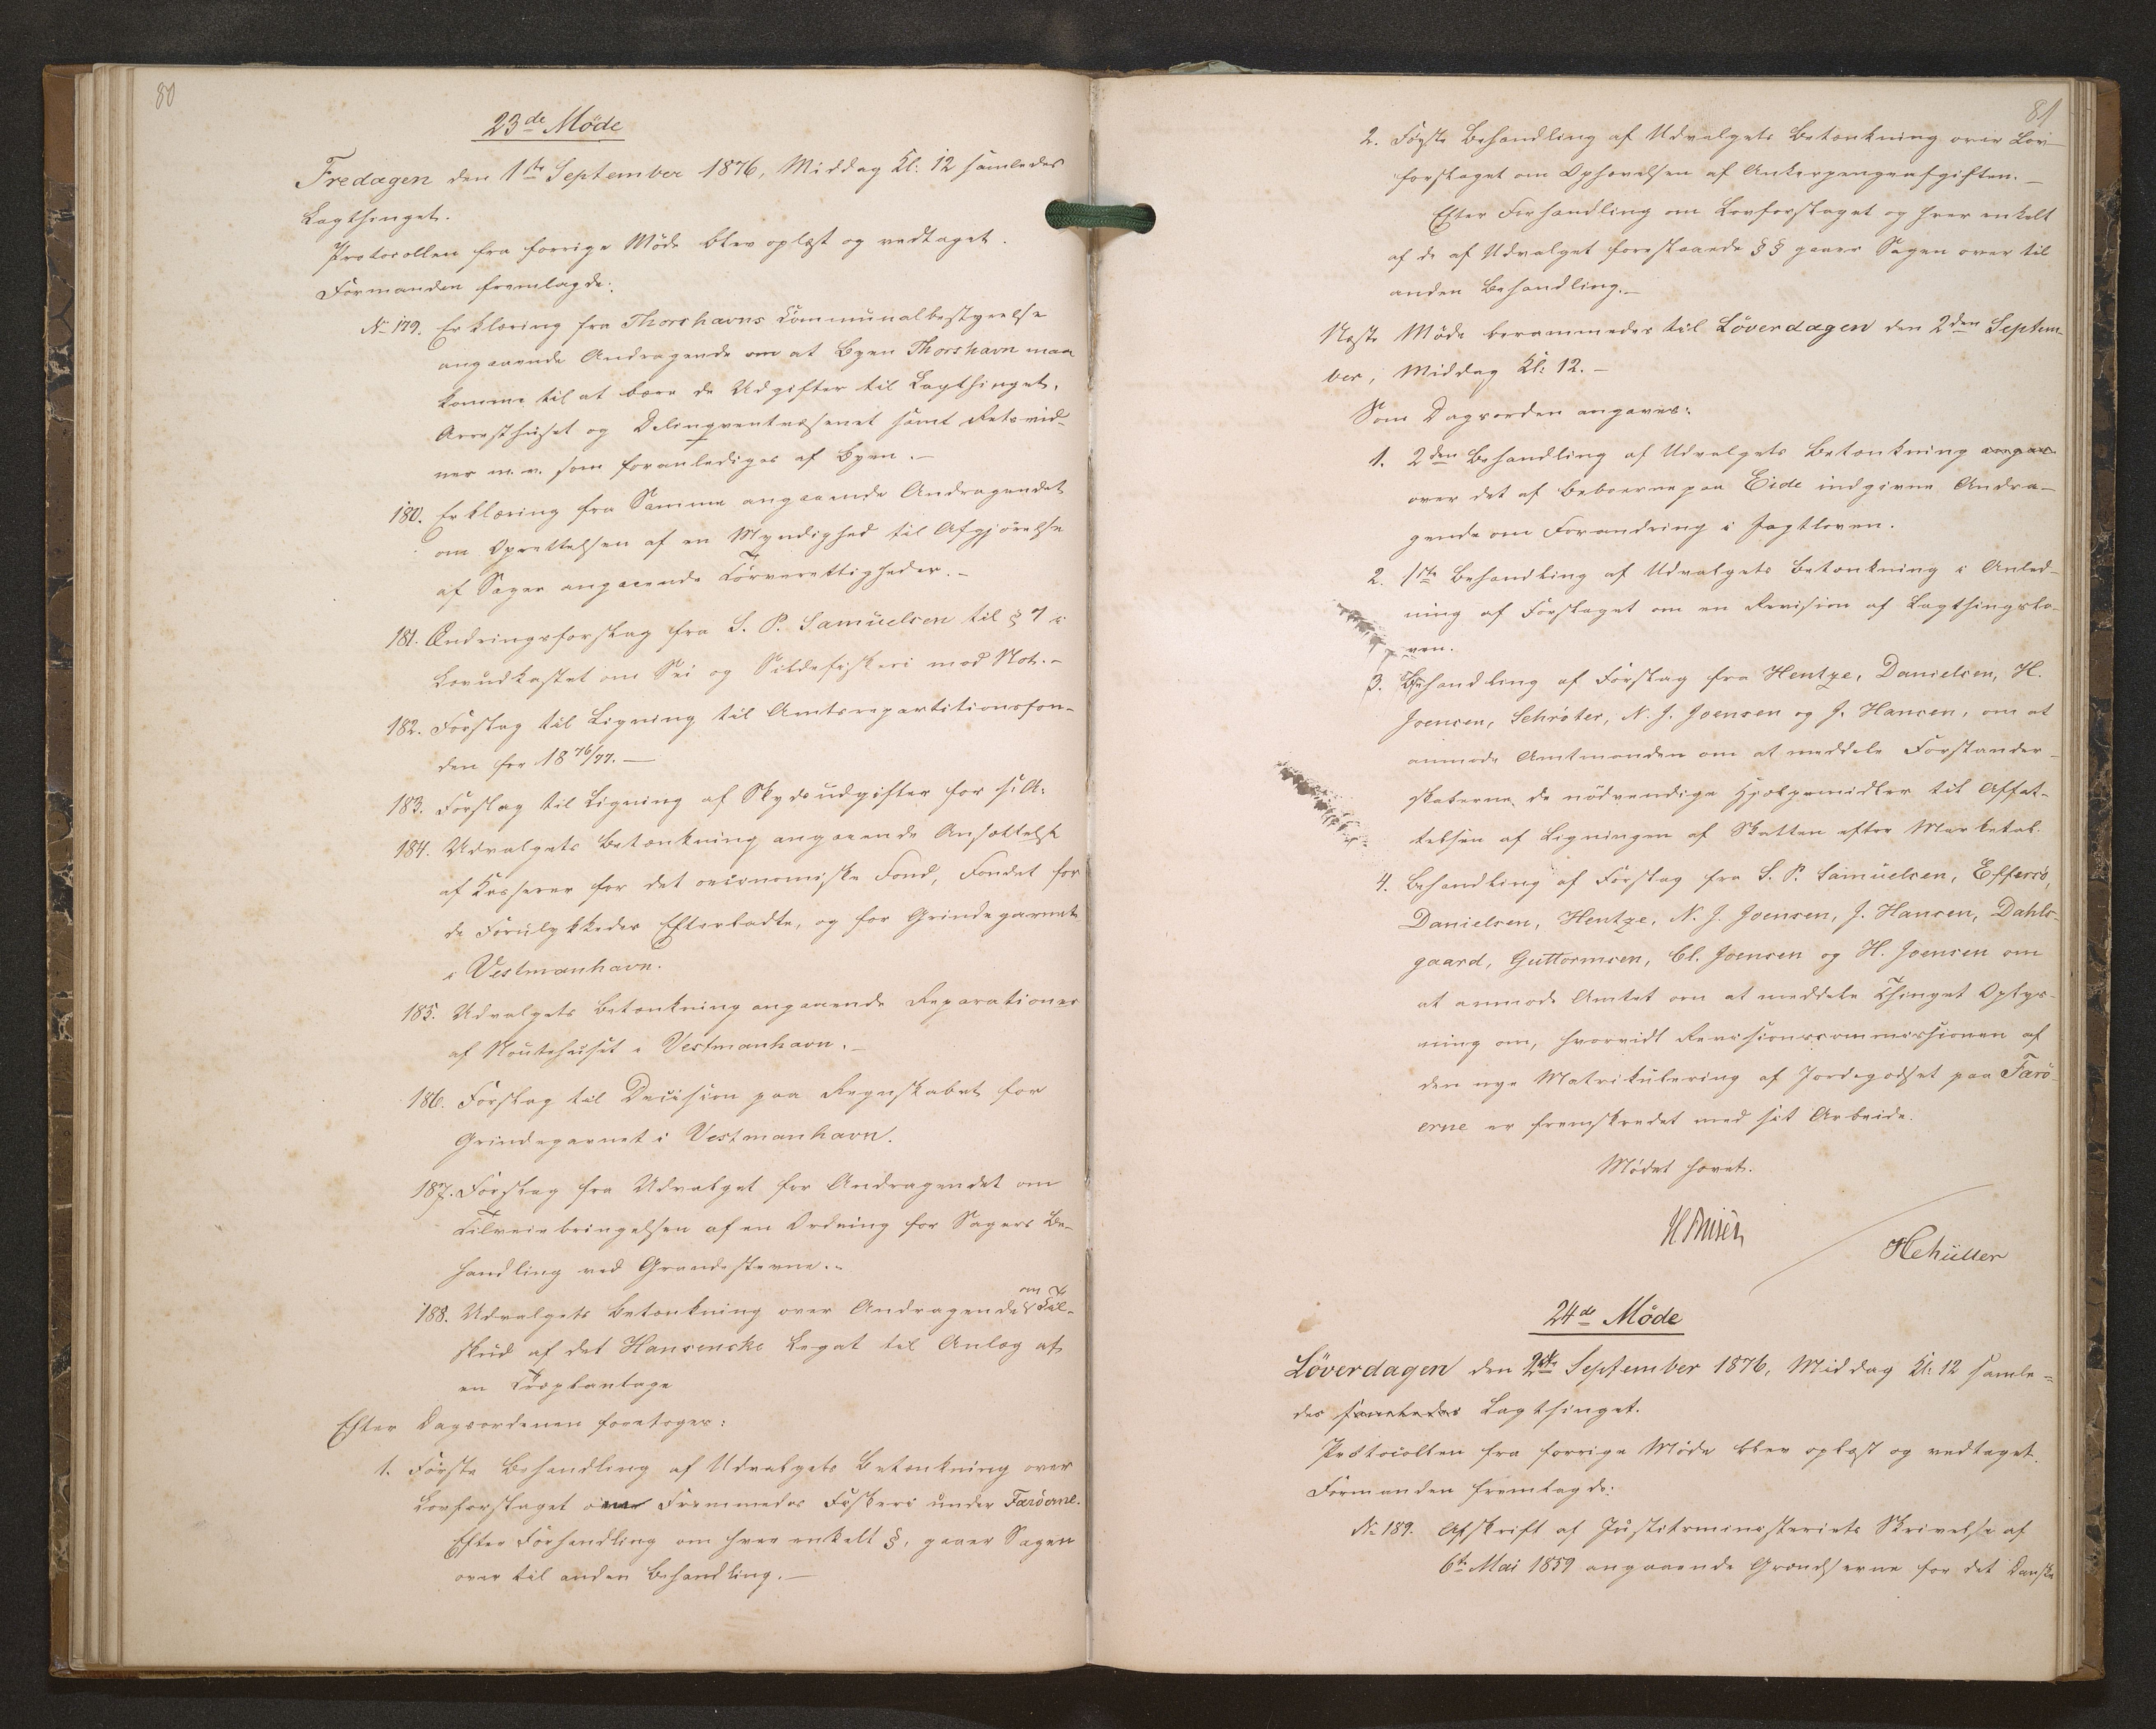 80
23de Møde
Fredagen den 1ste September 1876, Middag Kl: 12 samledes
Lagthinget.
Protocollen fra forrige Møde blev oplæst og vedtaget.
Formanden fremlagde:
No 179. Erklæring fra Thorshavns Communalbestyrelse
angaaende Andragende om at Byen Thorshavn maa
komme til at bære de Udgifter til Lagthinget,
Arresthuset og Delinqventvæsenet samt Retsvid-
ner m.v. som foranlediges af Byen.-
180. Erklæring fra Samme angaaende Andragendet
om Oprettelsen af en Myndighed til Afgjørelse
af Sager angaaende Tørverettigheder.-
181. Ændringsforslag fra S. P. Samuelsen til § 7 i
Lovudkastet om Sei og Sildefiskeri med Not.-
182. Forslag til Ligning til Amtsrepartitionsfon-
den for 1876/77.-
183. Forslag til Ligning af Skydsudgifter for s: A:
184. Udvalgets Betænkning angaaende Ansættelse
af Kasserer for det oeconomiske Fond, Fondet for
de Forulykkedes Efterladte, og for Grindegarnet
i Vestmanhavn.
185. Udvalgets Betænkning angaaende Reparationer
af Noutehuset i Vestmanhavn.-
186. Forslag til Decision paa Regnskabet for
Grindegarnet i Vestmanhavn.
187. Forslag fra Udvalget for Andragendet om
Tilveiebringelsen af en Ordning for Sagers Be-
handling ved Grandestevne.-
188. Udvalgets Betænkning over Andragendet om Til-
skud af det Hansenske Legat til Anlæg af
en Træplantage
Efter Dagsordenen foretoges:
1. Første Behandling af Udvalgets Betænkning over
Lovforslaget om Fremmedes Fiskeri under Færøerne.
Efter Forhandling om hver enkelt §, gaaer Sagen
over til anden Behandling.-
81
2. Første Behandling af Udvalgets Betænkning over Lov-
forslaget om Ophævelsen af Ankerpengeafgiften.-
Efter Forhandling om Lovforslaget og hver enkelt
af de af Udvalget foreslaaede §§ gaaer Sagen over til
anden Behandling.-
Næste Møde berammedes til Løverdagen den 2den Septem-
ber, Middag Kl: 12.-
Som Dagsorden angaves:
1. 2den Behandling af Udvalgets Betænkning angaa
over det af Beboerne paa Eide indgivne Andra-
gende om Forandring i Jagtloven.
2. 1ste Behandling af Udvalgets Betænkning i Anled-
ning af Forslaget om en Revision af Lagthingslo-
ven.
3. Behandling af Forslag fra Hentze, Danielsen, H.
Joensen, Schrøter, N. J. Joensen og J. Hansen, om at
anmode Amtmanden om at meddele Forstander-
skaberne de nødvendige Hjælpemidler til Affat-
telsen af Ligningen af Skatten efter Marketal.
4. Behandling af Forslag fra S. P. Samuelsen, Effersø,
Danielsen, Hentze, N. J. Joensen, J. Hansen, Dahls-
gaard, Guttormsen, Cl. Joensen og H. Joensen om
at anmode Amtet om at meddele Thinget Oplys-
ning om, hvorvidt Revisionscommissionen af
den nye Matrikulering af Jordegodset paa Færø-
erne er fremskredet med sit Arbeide.
Mødet hævet.
24de Møde
Løverdagen den 2den September 1876, Middag Kl: 12 samle-
des samledes Lagthinget.
Protocollen fra forrige Møde blev oplæst og vedtaget.
Formanden fremlagde:
No 189. Afskrift af Justitsministeriets Skrivelse af
6te Mai 1859 angaaende Grændserne for det Danske